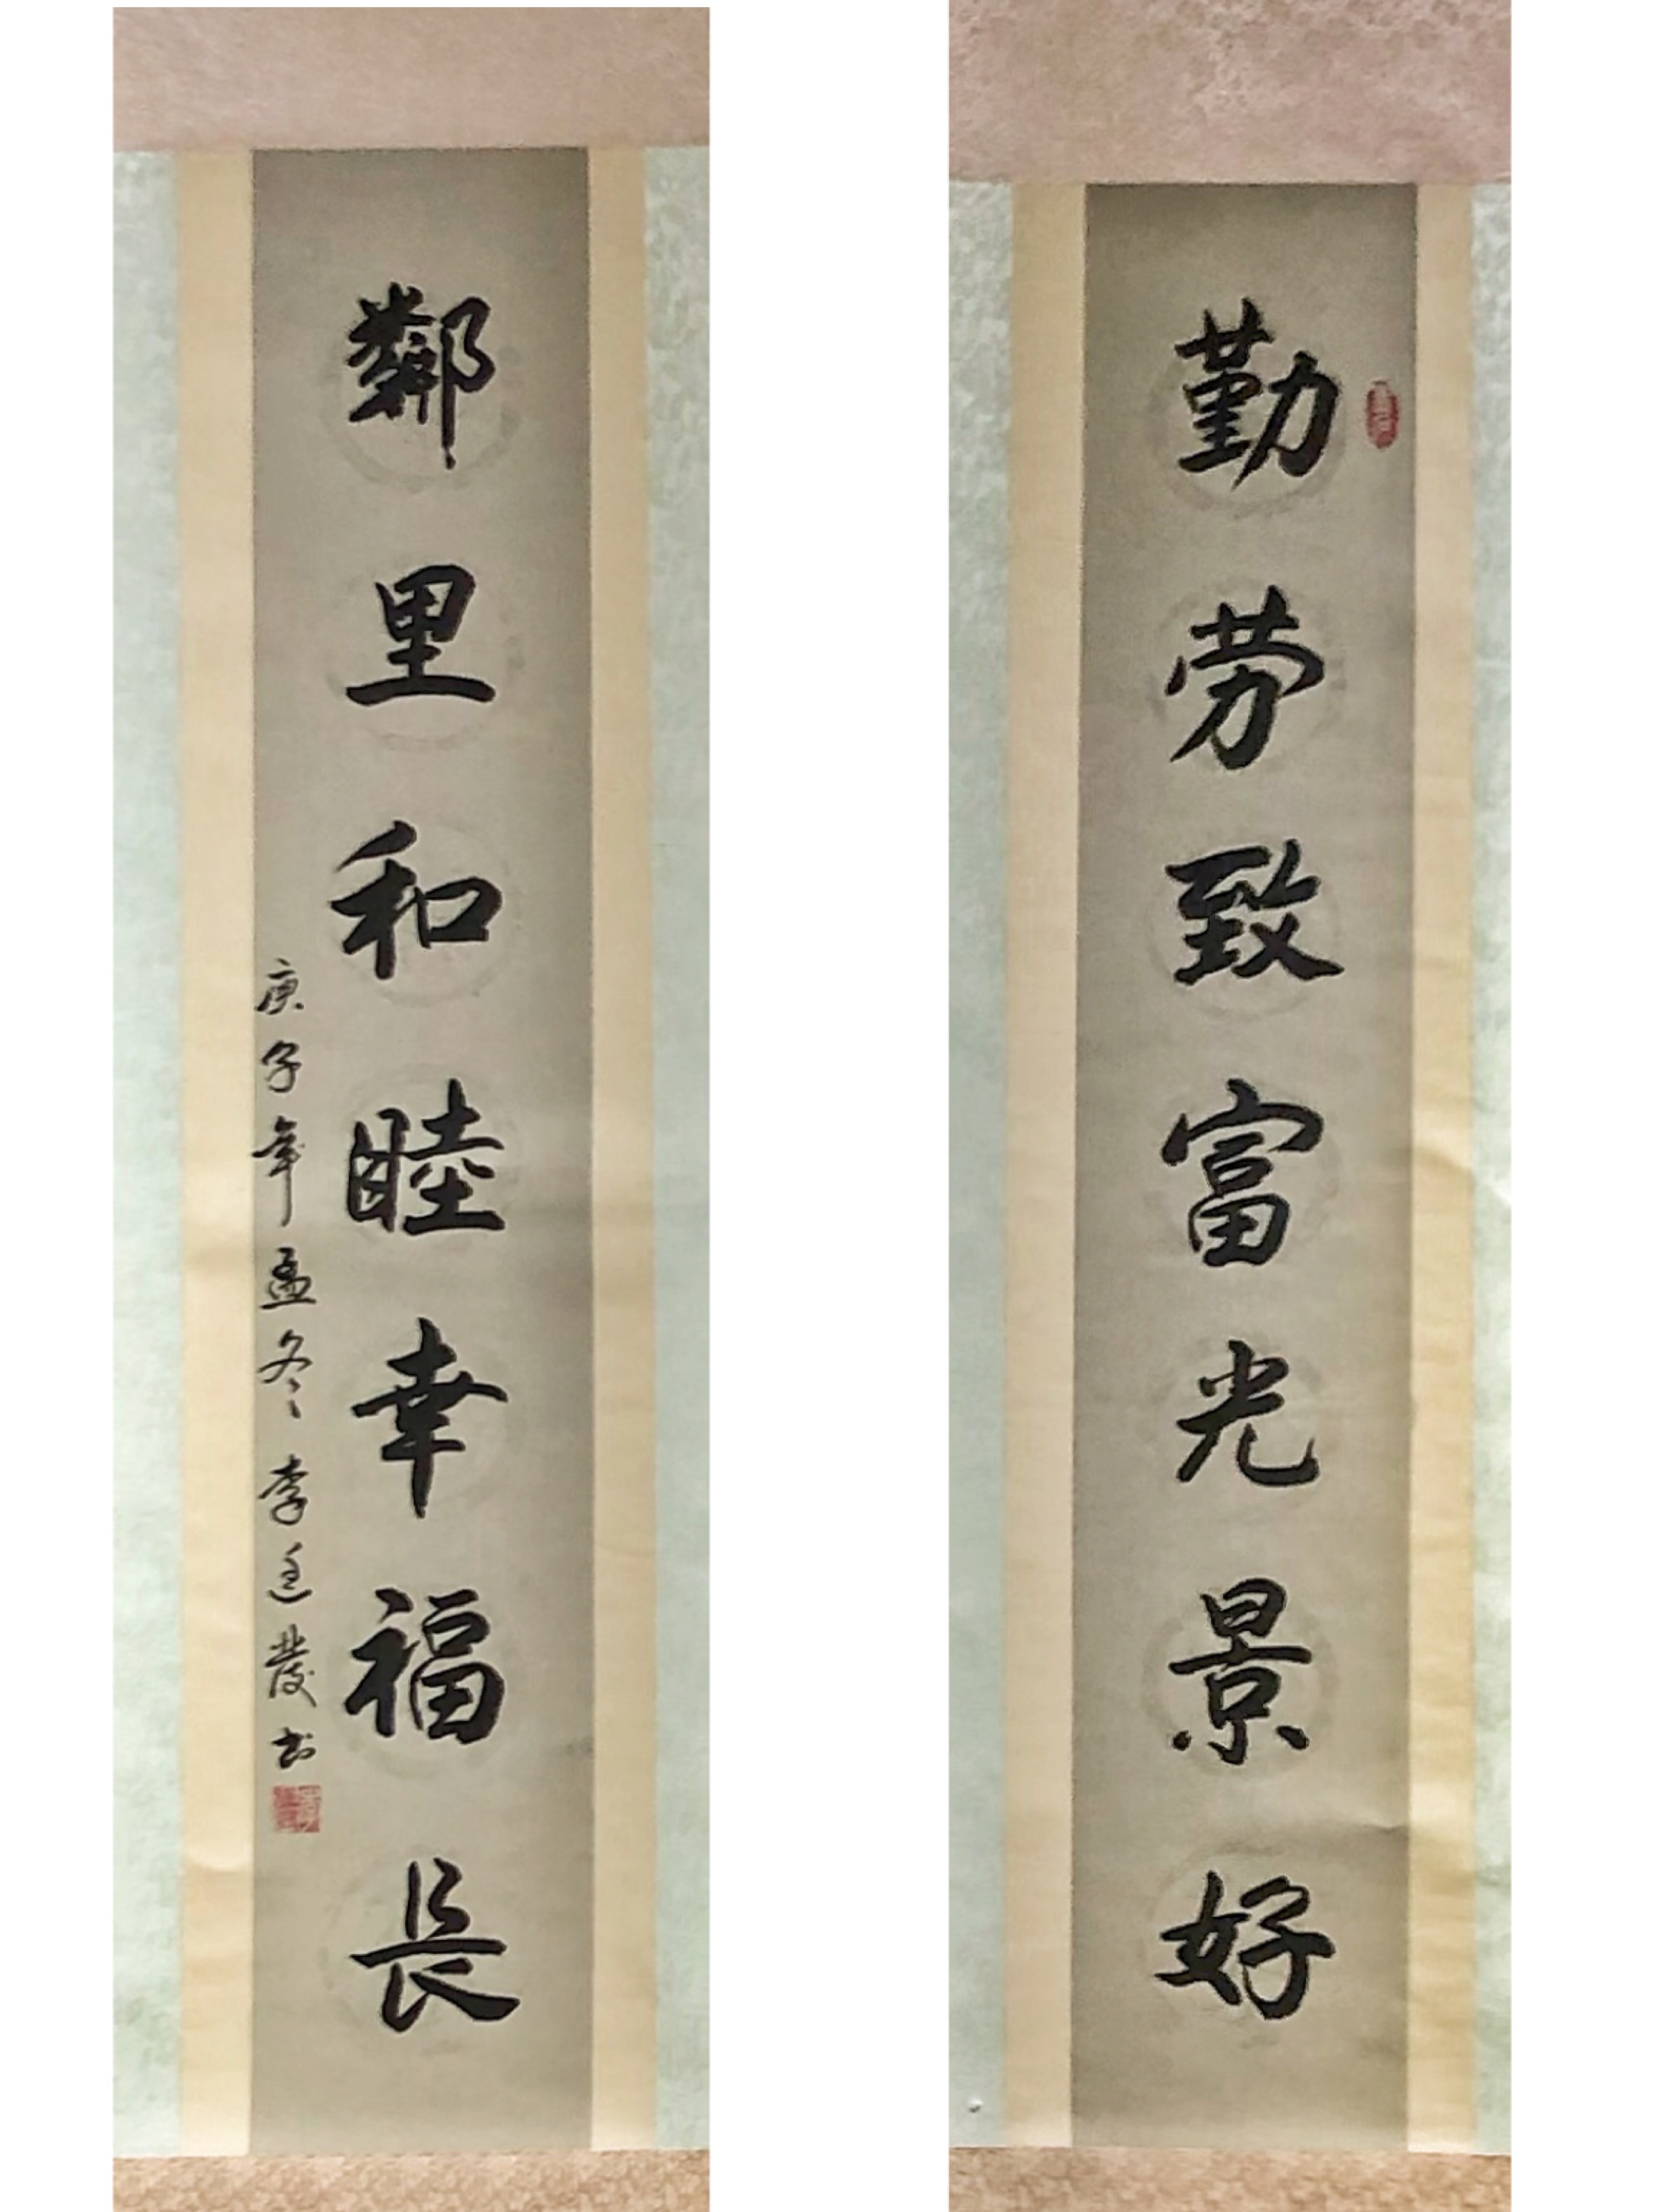 勤劳致富光景好
鄰里和睦幸福長
庚子年孟冬 李廷發书